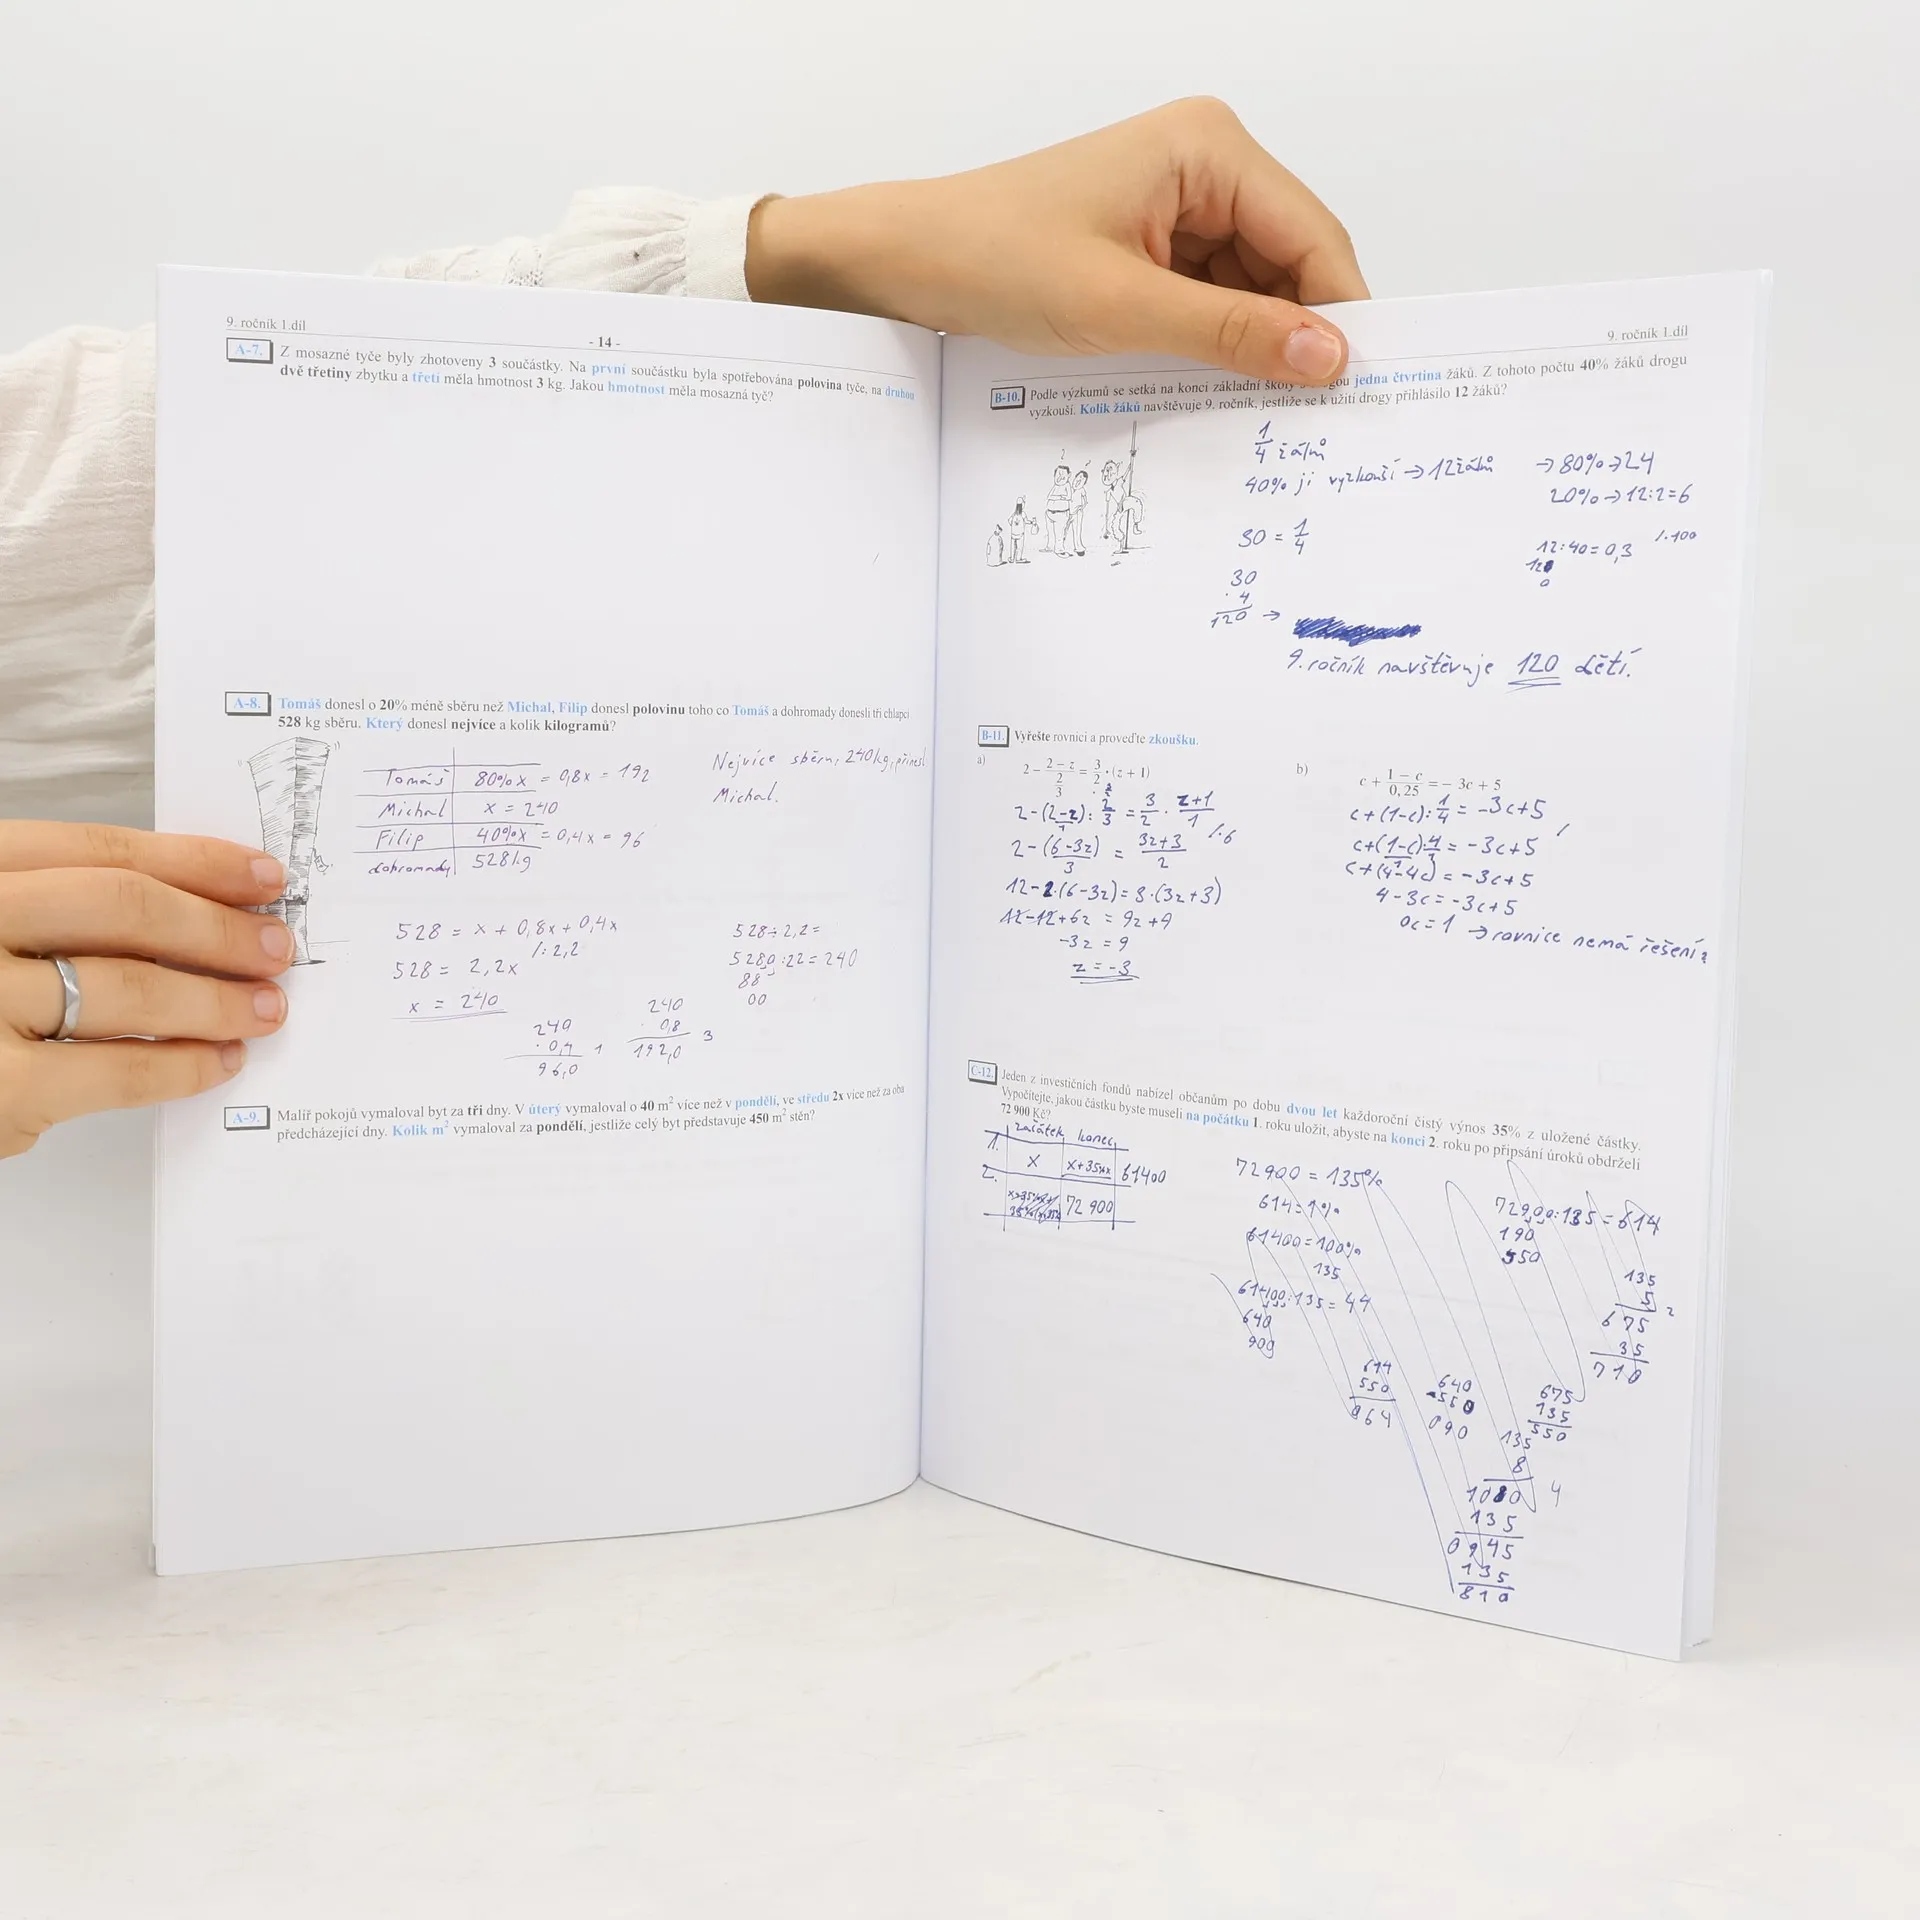 9. ročník 1.díl
- 14 -
A-7. Z mosazné tyče byly zhotoveny 3 součástky. Na první součástku byla spotřebována polovina tyče, na druhou
dvě třetiny zbytku a třetí měla hmotnost 3 kg. Jakou hmotnost měla mosazná tyč?
A-8. Tomáš donesl o 20% méně sběru než Michal, Filip donesl polovinu toho co Tomáš a dohromady donesli tři chlapci
528 kg sběru. Který donesl nejvíce a kolik kilogramů?
Tomáš 80%x = 0,8x = 192
Michal x = 240
Filip 40%x = 0,4x = 96
dohromady 528kg
Nejvíce sběru, 240kg, přinesl
Michal.
528 = x + 0,8x + 0,4x
/:2,2
528 = 2,2x
x = 240
528÷2,2=
5280:22=240
88
00
240
·0,4 1
96,0
240
·0,8 3
192,0
A-9. Malíř pokojů vymaloval byt za tři dny. V úterý vymaloval o 40 m² více než v pondělí, ve středu 2x více než za oba
předcházející dny. Kolik m² vymaloval za pondělí, jestliže celý byt představuje 450 m² stěn?
9. ročník 1.díl
B-10. Podle výzkumů se setká na konci základní školy jedna čtvrtina žáků. Z tohoto počtu 40% žáků drogu
vyzkouší. Kolik žáků navštěvuje 9. ročník, jestliže se k užití drogy přihlásilo 12 žáků?
1/4 žáků
40% ji vyzkouší → 12žáků → 80%→24
20%→12:2=6
30 = 1/4
12:40=0,3 /·100
120
0
30
·4
120 →
9. ročník navštěvuje 120 dětí.
B-11. Vyřešte rovnici a proveďte zkoušku.
a) 2 - (2 - z)/(2/3) = 3/2 · (z + 1)
2-(2-z):2/3 = 3/2 · z+1/1
2-(6-3z)/3 = 3z+3/2 /·6
12-2·(6-3z)=3·(3z+3)
12-12+6z = 9z+9
-3z = 9
z = -3
b) c + (1 - c)/0,25 = - 3c + 5
c+(1-c):1/4 = -3c+5
c+(1-c)·4/1 = -3c+5
c+(4-4c) = -3c+5
4-3c = -3c+5
0c = 1 → rovnice nemá řešení
C-12. Jeden z investičních fondů nabízel občanům po dobu dvou let každoroční čistý výnos 35% z uložené částky.
Vypočítejte, jakou částku byste museli na počátku 1. roku uložit, abyste na konci 2. roku po připsání úroků obdrželi
72 900 Kč?
začátek konec
1. x x+35%x 61400
2. 72 900
72900 = 135%
614=1%
61400=100%
135
61400:135=44
640
900
72900:135=614
190
550
135
5 2
675
35
710
614
550
064
640
-550
090
675
135
550
135
8
1080 4
135
0945
135
810